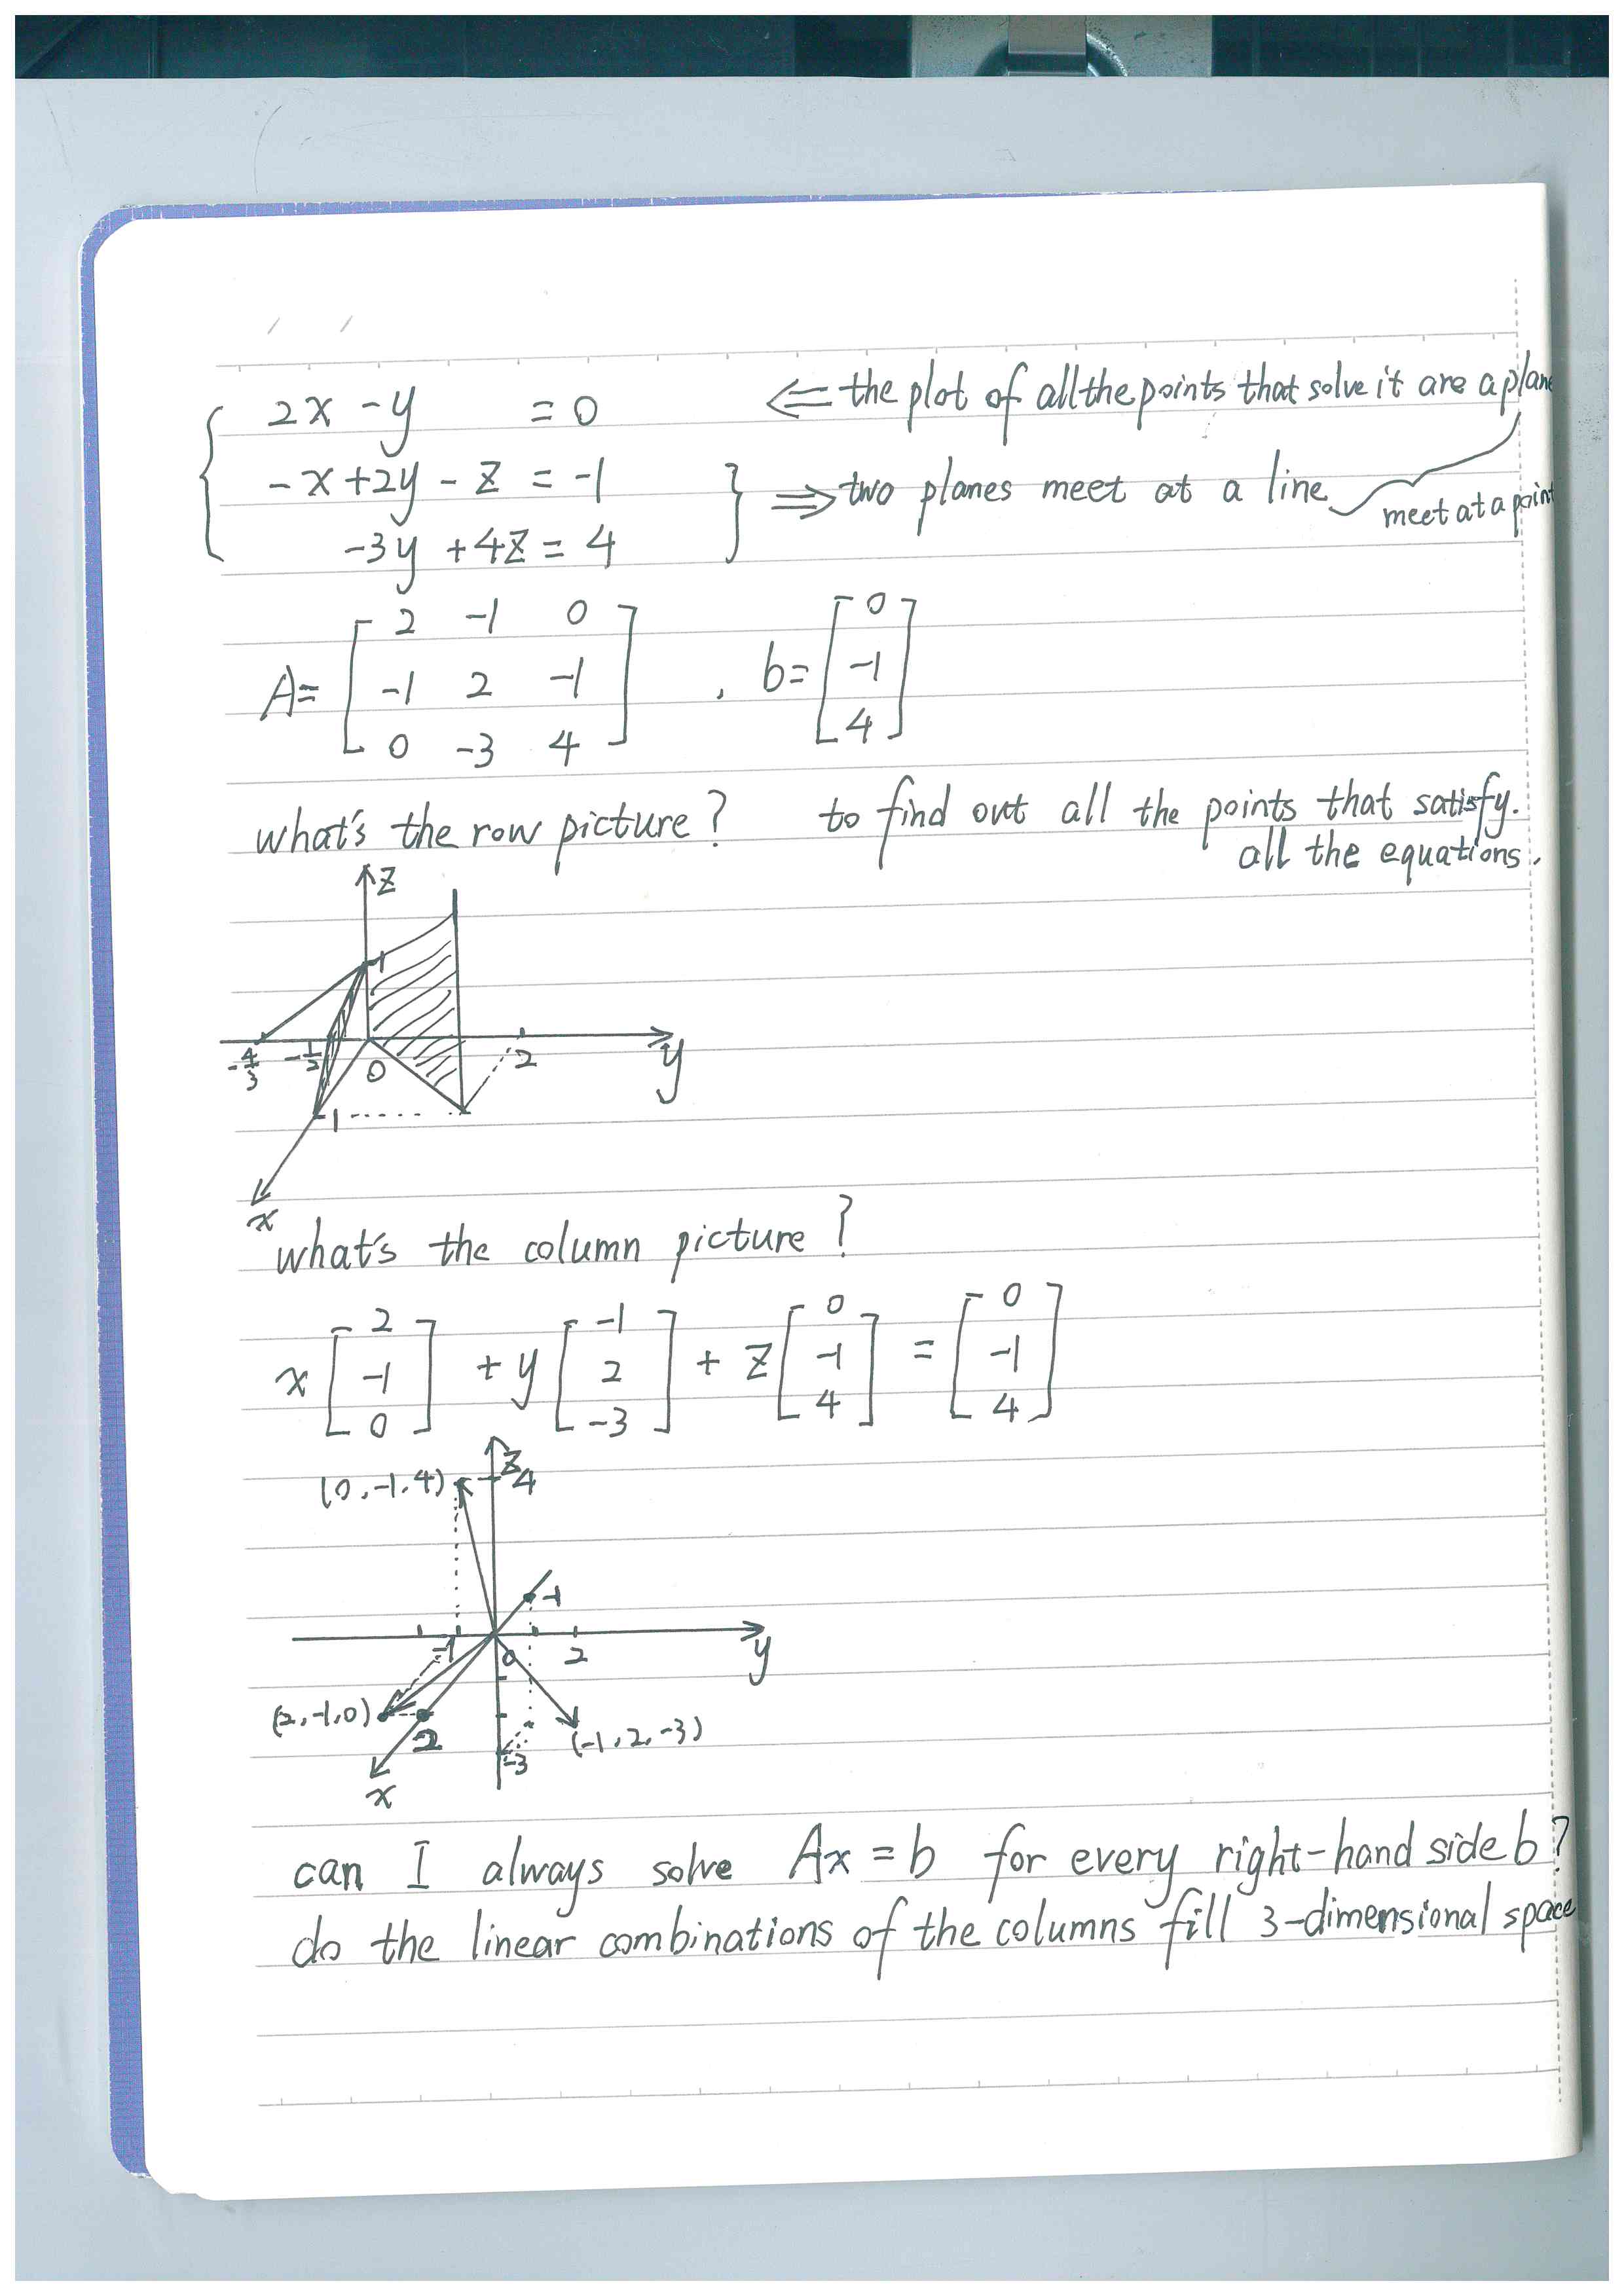 2x - y = 0 ⇐ the plot of all the points that solve it are a plane
-x + 2y - z = -1 ⇒ two planes meet at a line
meet at a point
-3y + 4z = 4
A = [ 2 -1 0
-1 2 -1
0 -3 4 ] , b = [ 0
-1
4 ]
what's the row picture? to find out all the points that satisfy.
all the equations.
z
1
-4/3 -1/2 0 2 y
1
x
what's the column picture?
x [ 2 -1 0 ] + y [ -1 2 -3 ] + z [ 0 -1 4 ] = [ 0 -1 4 ]
z
(0, -1, 4) 4
-1
-1 0 2 y
(2, -1, 0) 2 (-1, 2, -3)
-3
x
can I always solve Ax = b for every right-hand side b?
do the linear combinations of the columns fill 3-dimensional space